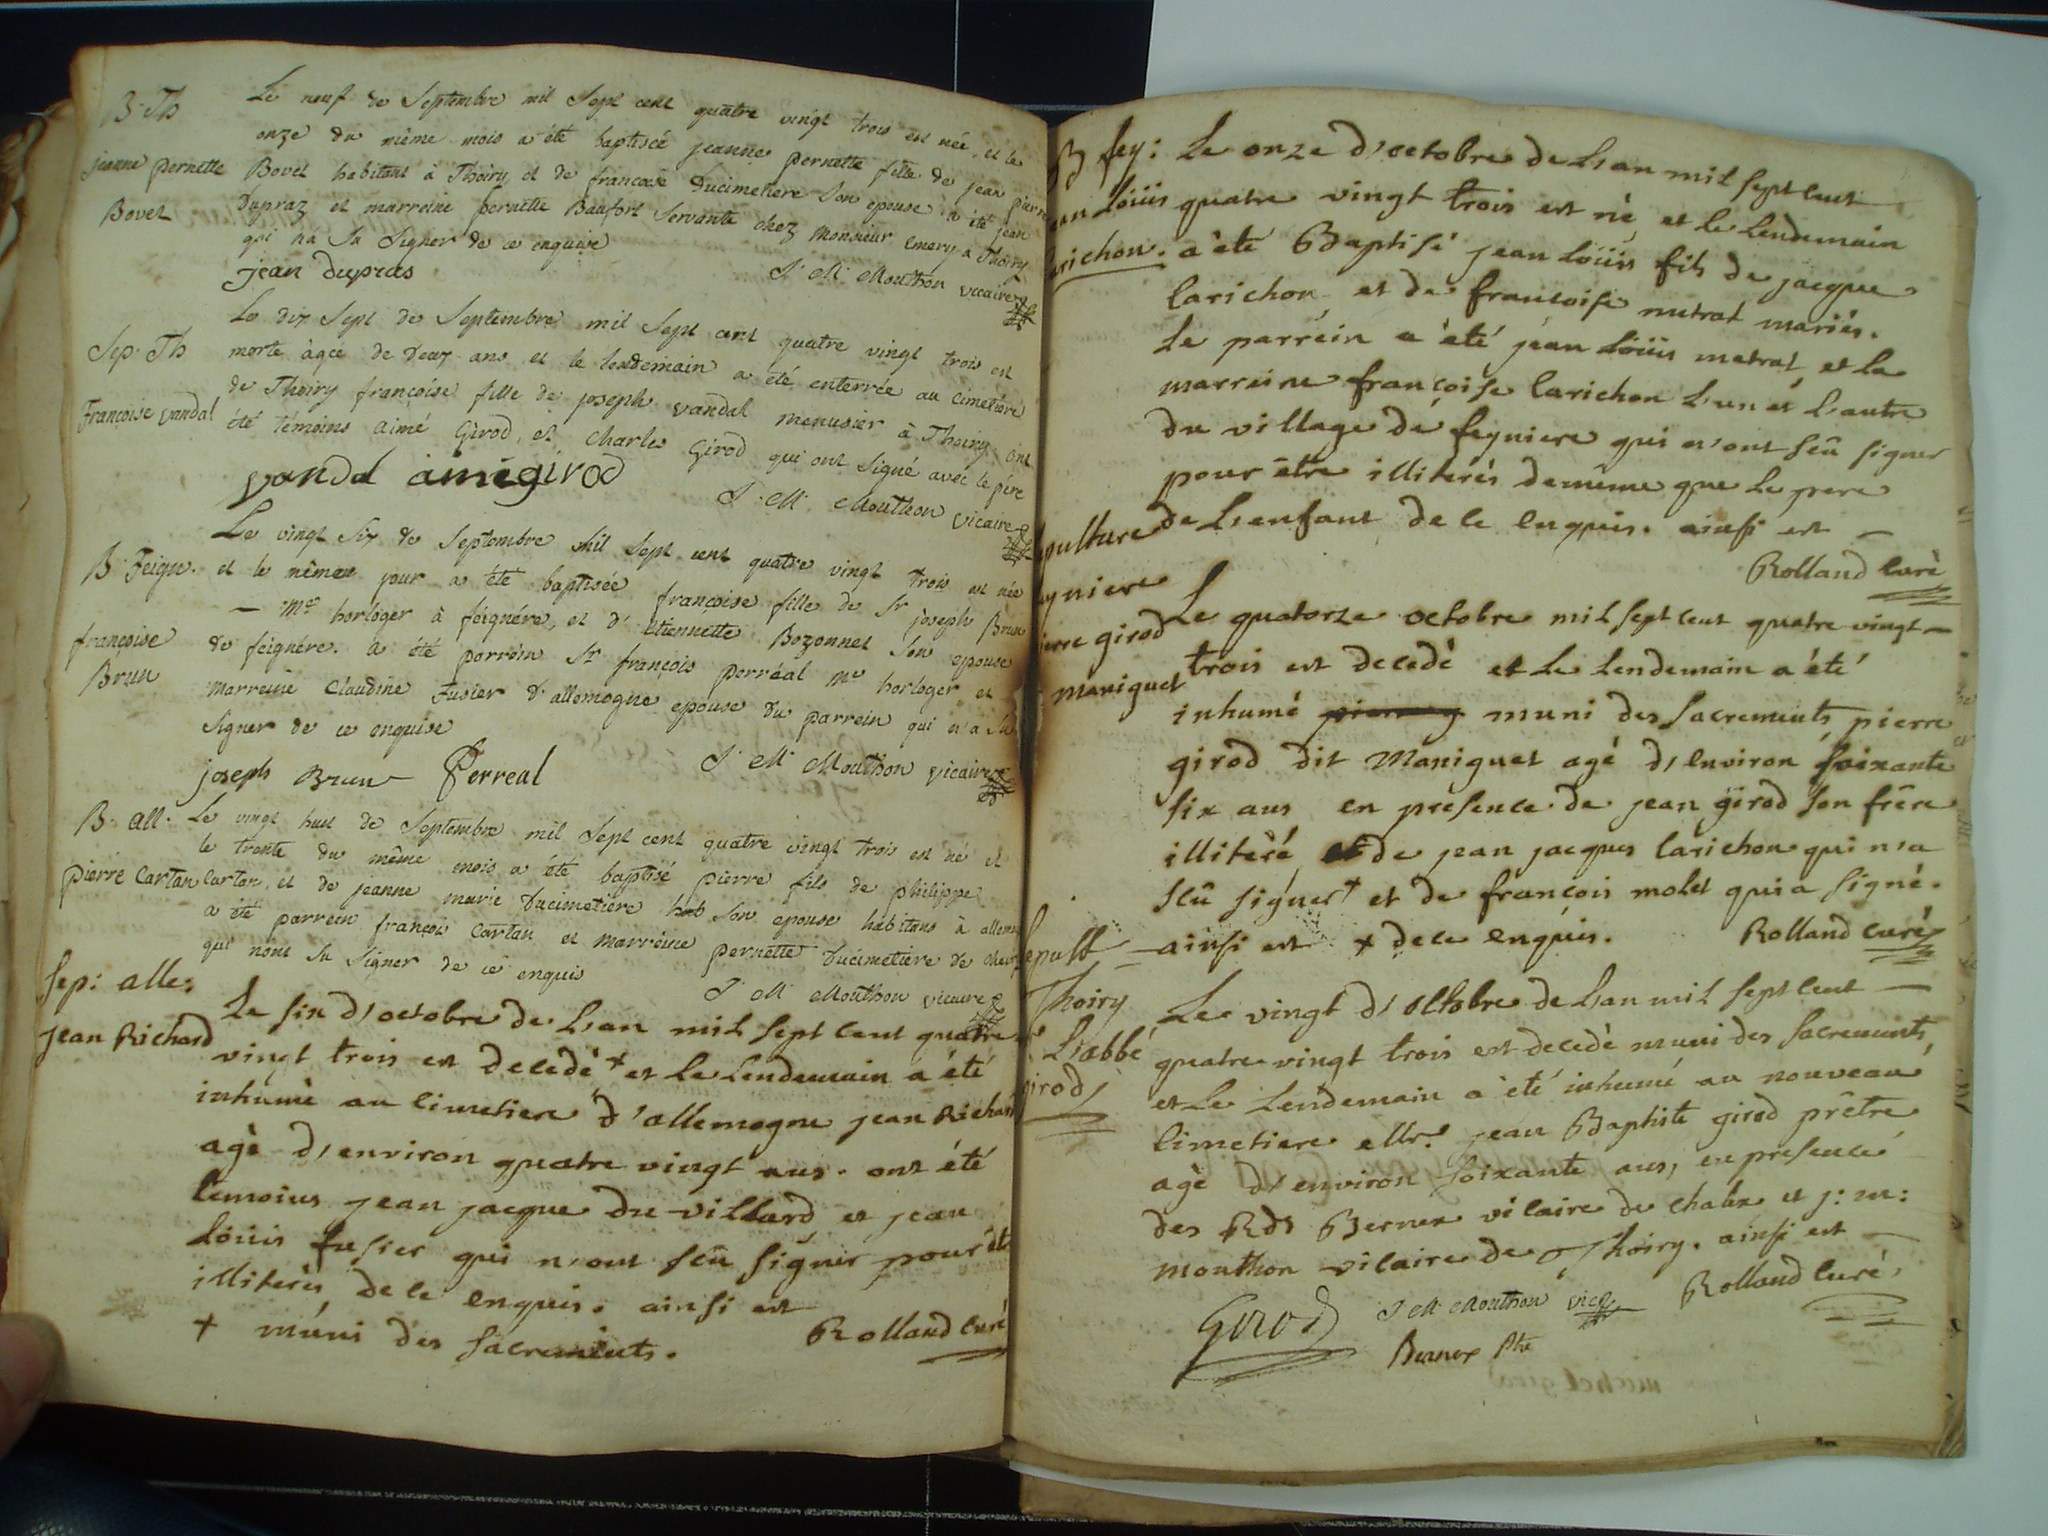 B. Th
jeanne pernette
Bovet
Le neuf de Septembre mil Sept cent quatre vingt trois est née, et le
onze du même mois a été baptisée jeanne pernette fille de jean pierre
Bovet habitant à Thoiry et de francoise Ducimetiere Son epouse a été jean
Dupraz et marreine pernette Baufort Servante chez Monsieur emery a Thoiry
qui na Su Signer de ce enquise
jean dupras
J. M. Mouthon vicaire
Sep. Th
Francoise vandal
Le dix Sept de Septembre mil Sept cent quatre vingt trois est
morte àgée de deux ans et le lendemain a été enterrée au cimetiere
de Thoiry francoise fille de joseph vandal menusier à Thoiry ont
été témoins aimé Girod, et Charles Girod qui ont Signé avec le pére
vandal amégirod
J. M. Mouthon vicaire
B. Feign.
françoise
Brun
Le vingt Six de Septembre mil Sept cent quatre vingt trois est née
et le même jour a été baptisée françoise fille de Sr joseph Brun
— Me horloger à feignére, et d' etiennette Bozonnet Son epouse
de feignére. a été parrein Sr françois perréal Me horloger et
Marreine Claudine Fusier d'allemogne epouse du parrein qui n'a Su
Signer de ce enquise
joseph Brun Perreal
J. M. Mouthon vicaire
B. all.
pierre Cartan
Le vingt huit de Septembre mil Sept cent quatre vingt trois est né et
le trente du même mois a été baptisé pierre fils de philippe
Cartan, et de jeanne marie Ducimetiére Son epouse habitans à allem
a été parrein françois Cartan et marreine pernette Ducimetiere de
qui nont Su Signer de ce enquis
J. M. Mouthon vicaire
Sep: alle:
Jean Richard
Le six d'octobre de L'an mil sept cent quatre
vingt trois est decedè + et Le Lendemain a été
inhumè au cimetiere d'allemogne jean Richard
agè d'environ quatre vingt ans. ont été
temoins jean jacque du villard et jean
Löüis fusier qui n'ont scû signer pour etr
illiterès de ce enquis. ainsi est
+ muni des sacrements.
Rolland curé
B fey:
an Löüis
arichon.
Le onze d'octobre de L'an mil sept cent
quatre vingt trois est nè, et le Lendemain
a èté Baptisé jean Löüis fils de jacque
Larichon et de francoise metrat mariés.
Le parrein a èté jean Löüis metrat et la
marreine françoise Larichon L'un et L'autre
du village de feyniere qui n'ont seû signer
pour être illiterés demême que Le pere
de L'enfant de ce enquis. ainsi est —
Rolland curè
pulture
yniere
erre girod
maniguet
Le quatorze octobre mil sept cent quatre vingt —
trois est decedè et Le Lendemain a èté
inhumé muni des sacrements pierre
girod dit Maniguet agè d'environ soixante
six ans en presence de jean girod son frère
illiteré et de jean jacques Larichon qui n'a
scû signer + et de françois molet qui a signé.
ainsi est + de ce enquis.
Rolland curé
epult —
Thoiry
L'abbé
irod
Le vingt d'octobre de L'an mil sept cent —
quatre vingt trois est decedè muni des sacrements,
et Le Lendemain a èté inhumé au nouveau
cimetiere jean Baptiste girod prêtre
agè d'environ soixante ans, en presence
des Rds Bernex vicaire de chalex et j: m:
mouthon vicaire de Thoiry. ainsi est —
Girod J M Mouthon vic Rolland Curé
Bernex Ptre